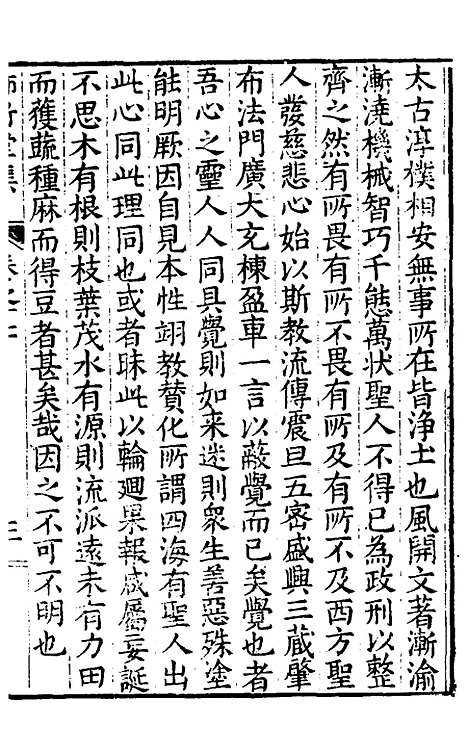 太古淳樸相安無事所在皆淨土也風開文著漸渝
漸澆機械智巧千態萬狀聖人不得已為政刑以整
齊之然有所畏有所不畏有所及有所不及西方聖
人發慈悲心始以斯教流傳震旦五宻盛興三蔵肇
布法門廣大充棟盈車一言以蔽覺而已矣覺也者
吾心之靈人人同具覺則如来迷則衆生善惡殊塗
能明厥因自見本性翊教賛化所謂四海有聖人出
此心同此理同也或者昧此以輪廻果報咸屬妄誕
不思木有根則枝葉茂水有源則流派遠未有力田
而獲蔬種麻而得豆者甚矣哉因之不可不明也